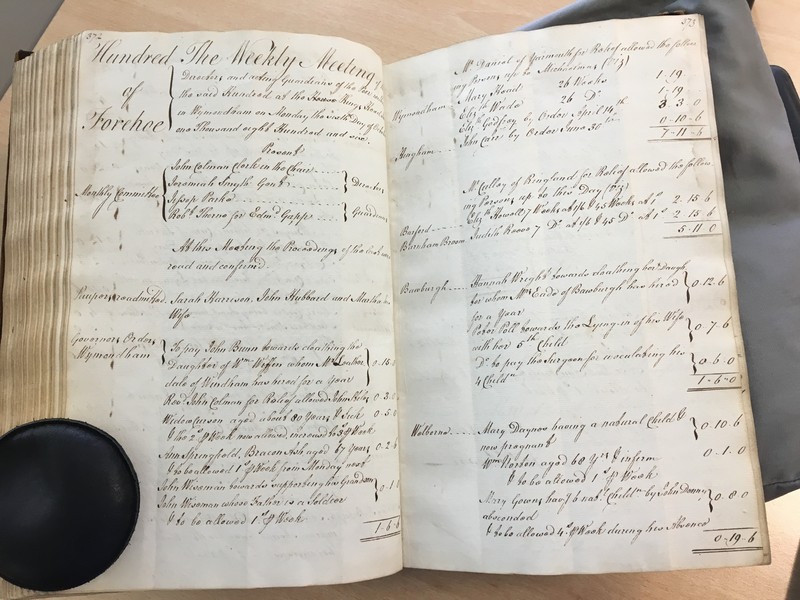 372
Hundred The Weekly Meeting of
of Directors and acting Guardians of the Poor
Forehoe the said Hundred at the House Kings Head
in Wymondham on Monday the sixth Day of
one Thousand eight Hundred and
Present
John Colman Clerk in the Chair
Monthly Committee Jeremiah Smyth Gent. Directors
Jessop Parke
Robt. Thorne for Edmd. Gapp Guardians
At this Meeting the Proceedings of the last were
read and confirmed.
Paupers readmitted Sarah Harrison, John Hubbard and Martha his
Wife
Governors Orders To pay John Bunn towards cloathing the
Wymondham Daughter of Wm. Wiffen whom Mr.
dale of Windham has hired for a Year 0. 15. 0
Revd. John Colman for Relief allowed John 0. 3. 0
Widow aged about 80 Years & Sick 0. 5. 0
& has 2s. P Week now allowed, increased to 3s. P Week
Ann Springfold, Bracon Ash aged 67 Years 0. 2. 6
& to be allowed 1s. P Week from Monday next
John Wiseman towards supporting his Grandson
John Wiseman whose Father is a Soldier 0. 1. 0
& to be allowed 1s. P Week
1. 6. 6
373
Mr. Daniel of Yarmouth for Relief allowed the follow
ing Persons up to Michaelmas (viz)
Wymondham Mary Hand 26 Weeks 1. 19.
Elizth. Wade 26 Do. 1. 19.
Elizth. Godfrey by Order April 14th 3. 3. 0
Hingham John Carr by Order June 30th 0. 10. 6
7. 11. 6
Mr. Culley of Ringland for Relief allowed the follow
ing Persons up to this Day (viz)
Barford Elizth. Howell 7 Weeks at 1/6 & 45 Weeks at 1s. 2. 15. 6
Barnham Broom Judith Reeve 7 Do. at 1/6 & 45 Do. at 1s. 2. 15. 6
5. 11. 0
Bawburgh Hannah Wright towards cloathing her Daugh.
for whom Mr. Eade of Bawburgh has hired 0. 12. 6
for a Year
Peter Poll towards the Lying-in of his Wife
with her 5th Child 0. 7. 6
Do. to pay the Surgeon for inoculating his
4 Childn. 0. 6. 0
1. 6. 0
Welborne Mary Daynes having a natural Child &
now pregnant 0. 10. 6
Wm. Norton aged 68 Yrs. & infirm 0. 1. 0
& to be allowed 1s. P Week
Mary Gowen havg. 6 nat. Childn. by John Denny
absconded 0. 8. 0
& to be allowed 4s. P Week during his Absence
0. 19. 6